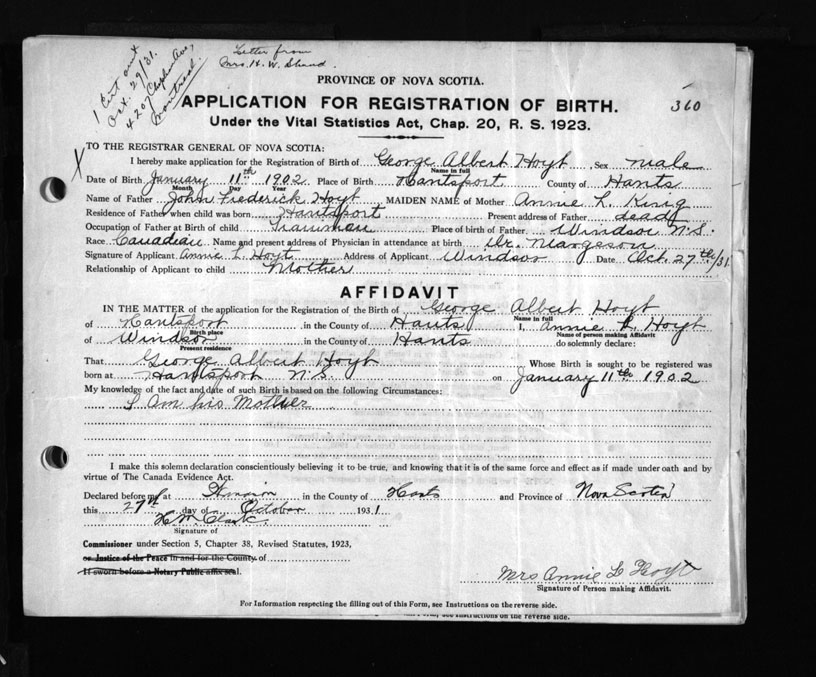 1 Cert sent
Oct. 29/31.
4207
Montreal.
Letter from
Mrs. H. W. Shand
PROVINCE OF NOVA SCOTIA.
APPLICATION FOR REGISTRATION OF BIRTH.
360
Under the Vital Statistics Act, Chap. 20, R. S. 1923.
X
TO THE REGISTRAR GENERAL OF NOVA SCOTIA:
I hereby make application for the Registration of Birth of George Albert Hoyt, Sex male
Name in full
Date of Birth January 11th 1902 Place of Birth Hantsport County of Hants
Month Day Year
Name of Father John Frederick Hoyt MAIDEN NAME of Mother Annie L. King
Residence of Father when child was born Hantsport Present address of Father dead
Occupation of Father at Birth of child Place of birth of Father Windsor N.S.
Race Canadian Name and present address of Physician in attendance at birth Dr. Margeson
Signature of Applicant Annie L Hoyt Address of Applicant Windsor Date Oct. 27th/31
Relationship of Applicant to child Mother
AFFIDAVIT
IN THE MATTER of the application for the Registration of the Birth of George Albert Hoyt
Name in full
of Hantsport in the County of Hants I, Annie L Hoyt
Birth place Name of person making Affidavit
of Windsor in the County of Hants do solemnly declare:
Present residence
That George Albert Hoyt Whose Birth is sought to be registered was
born at Hantsport N.S. on January 11th 1902
My knowledge of the fact and date of such Birth is based on the following Circumstances:
I am his Mother
I make this solemn declaration conscientiously believing it to be true, and knowing that it is of the same force and effect as if made under oath and by
virtue of The Canada Evidence Act.
Declared before me at in the County of Hants and Province of Nova Scotia
this 27th day of October 1931
H.M. Clark
Signature of
Commissioner under Section 5, Chapter 38, Revised Statutes, 1923,
or Justice of the Peace in and for the County of
If sworn before a Notary Public affix seal.
Mrs Annie L Hoyt
Signature of Person making Affidavit.
For Information respecting the filling out of this Form, see Instructions on the reverse side.
Form, see Instructions on the reverse side.